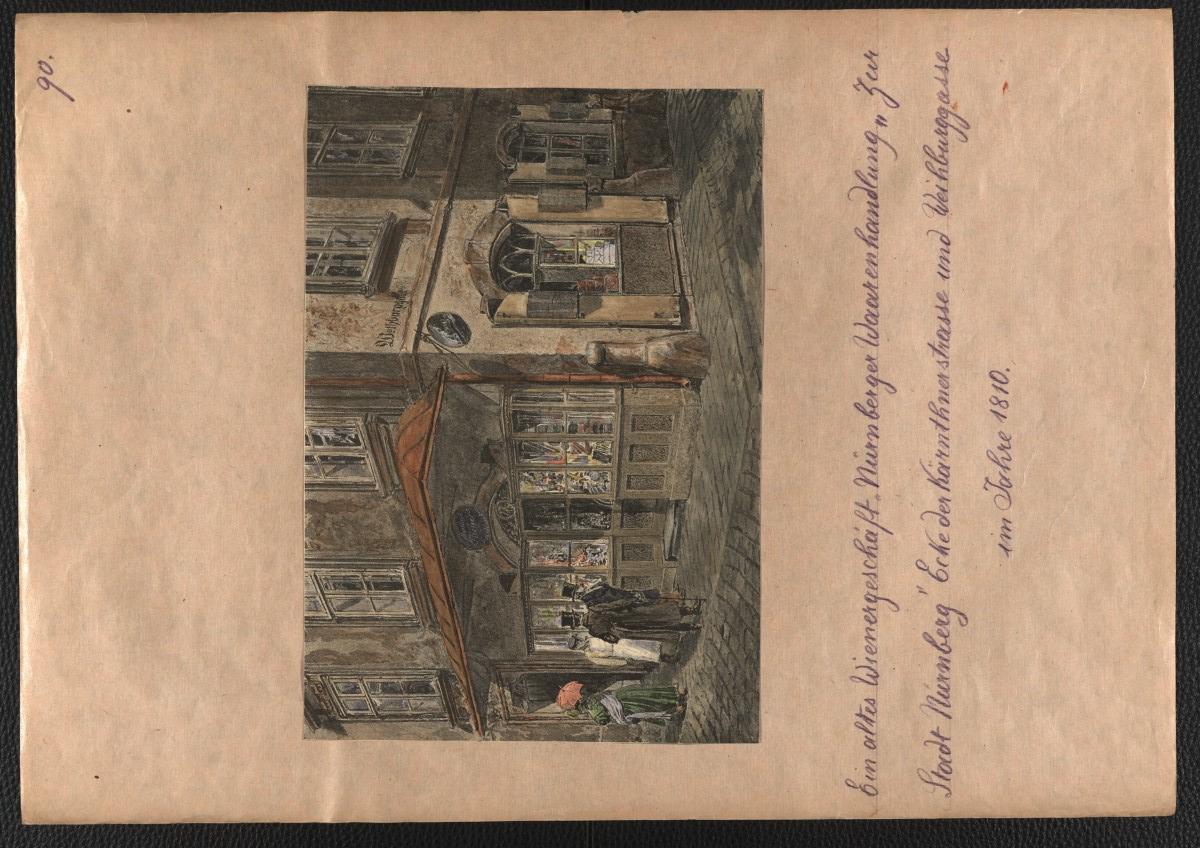 90.
Weihburggasse
Ein altes Wienergeschäft „Nürnberger Waarenhandlung „Zur
Stadt Nürnberg" Ecke der Kärnthnerstrasse und Weihburggasse
im Jahre 1810.